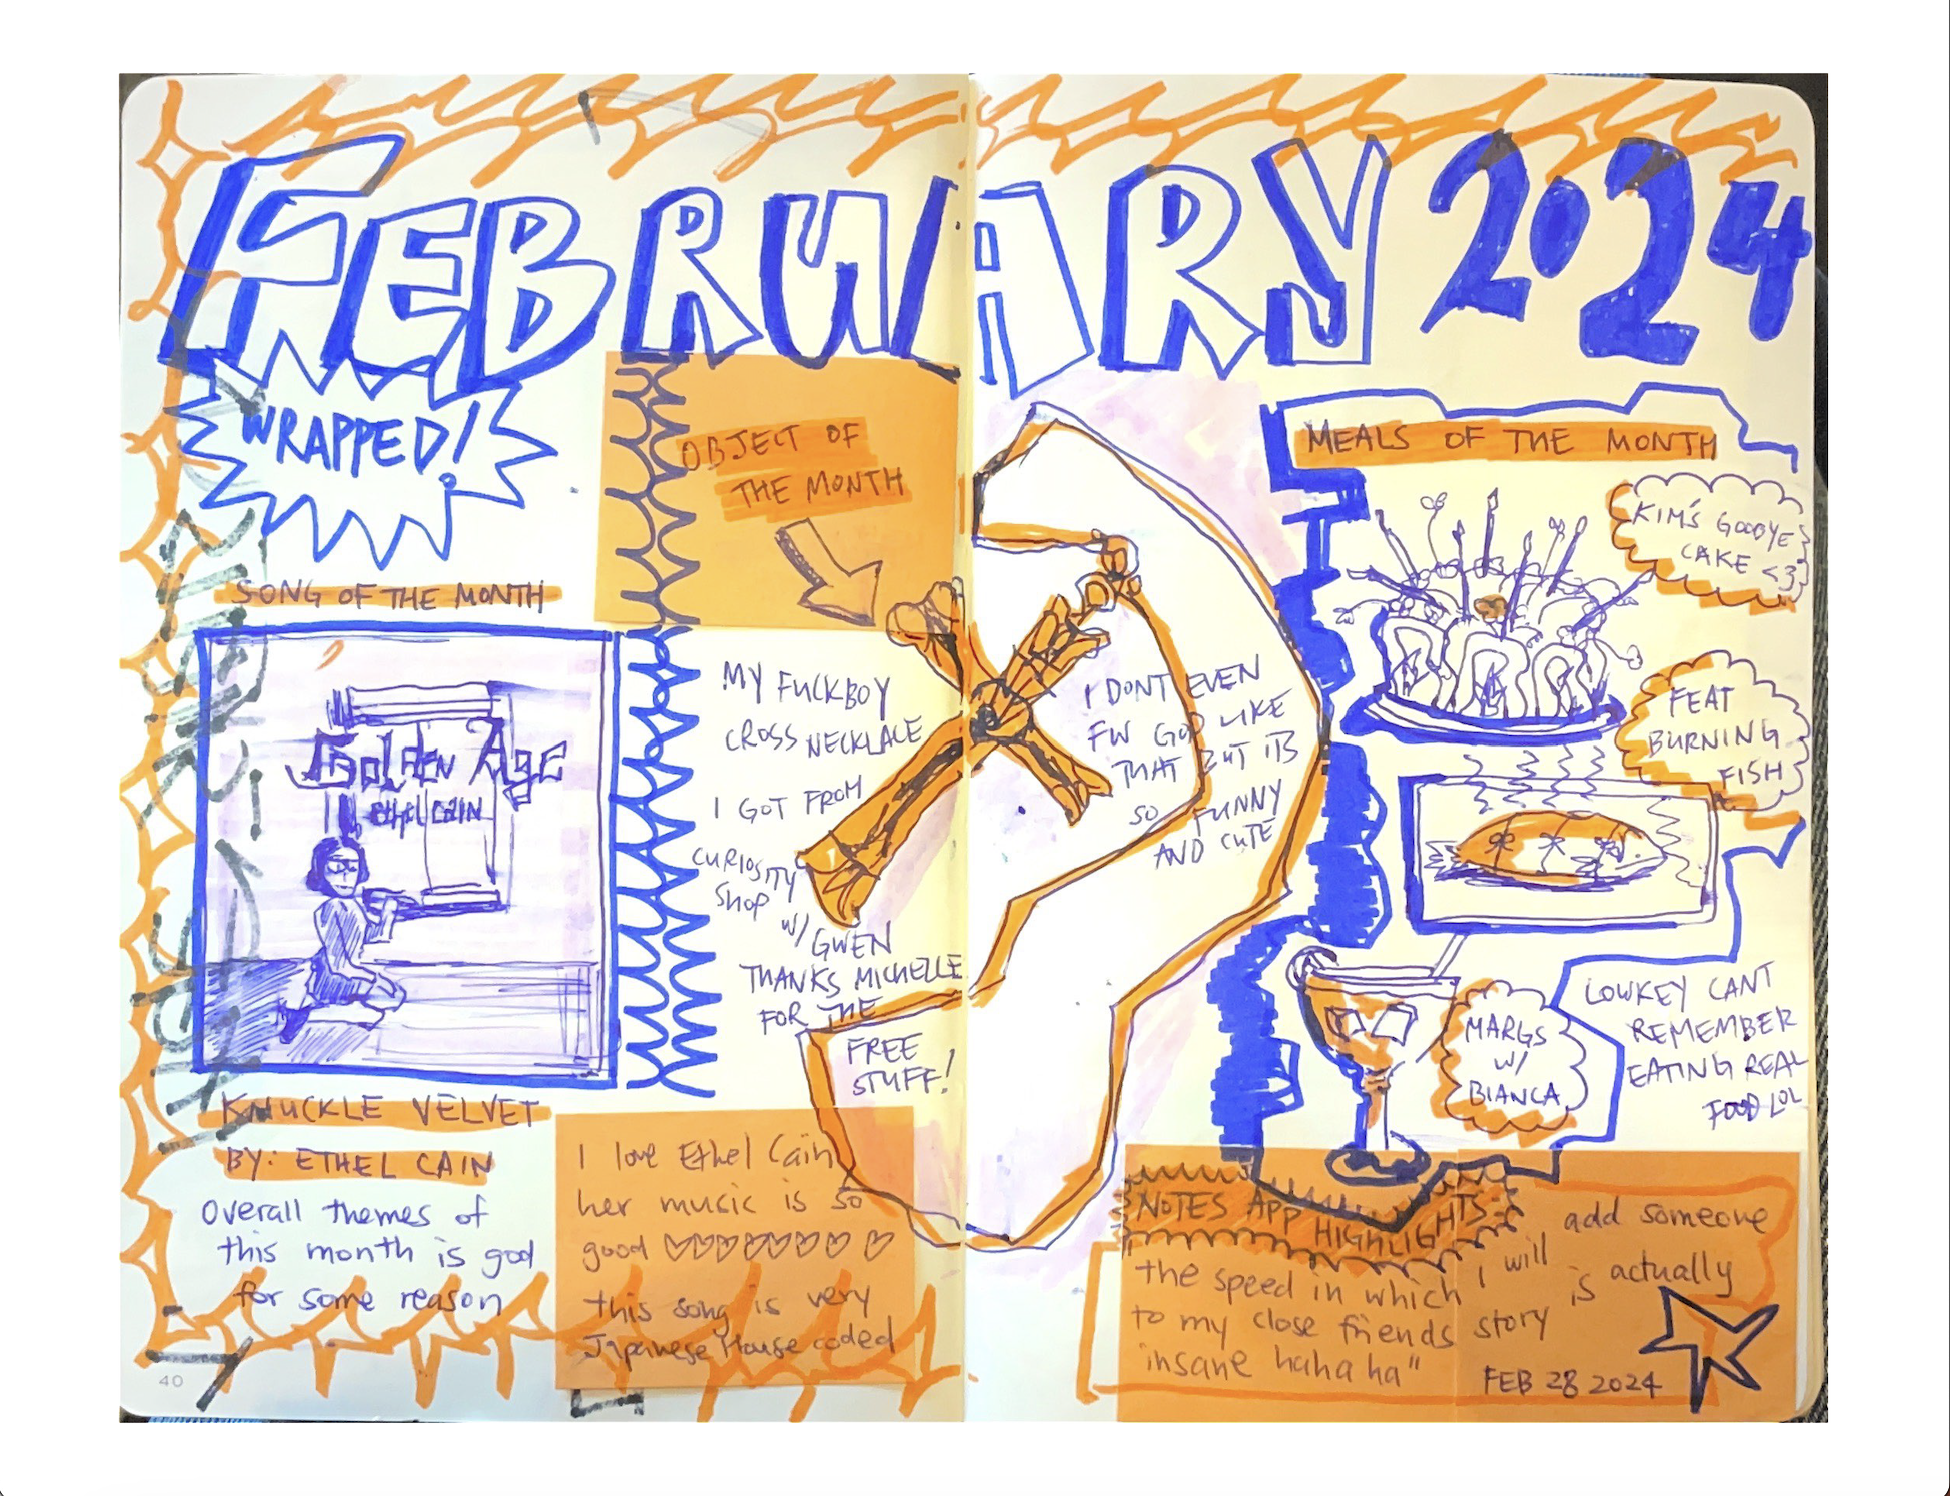 FEBRUARY 2024
WRAPPED!
SONG OF THE MONTH
Golden Age
ETHEL CAIN
KNUCKLE VELVET
BY: ETHEL CAIN
Overall themes of
this month is god
for some reason
I love Ethel Cain
her music is so
good ♡♡♡♡♡♡♡ ♡
this song is very
Japanese House coded
40
OBJECT OF
THE MONTH
MY FUCKBOY
CROSS NECKLACE
I GOT FROM
CURIOSITY
Shop
W/ GWEN
THANKS MICHELLE
FOR THE
FREE
STUFF!
I DONT EVEN
FW GOD LIKE
THAT BUT ITS
SO FUNNY
AND CUTE
MEALS OF THE MONTH
KIM'S GOODYE
CAKE <3
FEAT
BURNING
FISH
MARGS
W/
BIANCA
LOWKEY CANT
REMEMBER
EATING REAL
FOOD LOL
NOTES APP
HIGHLIGHTS
the speed in which I will add someone
to my close friends story is actually
insane haha ha"
FEB 28 2024